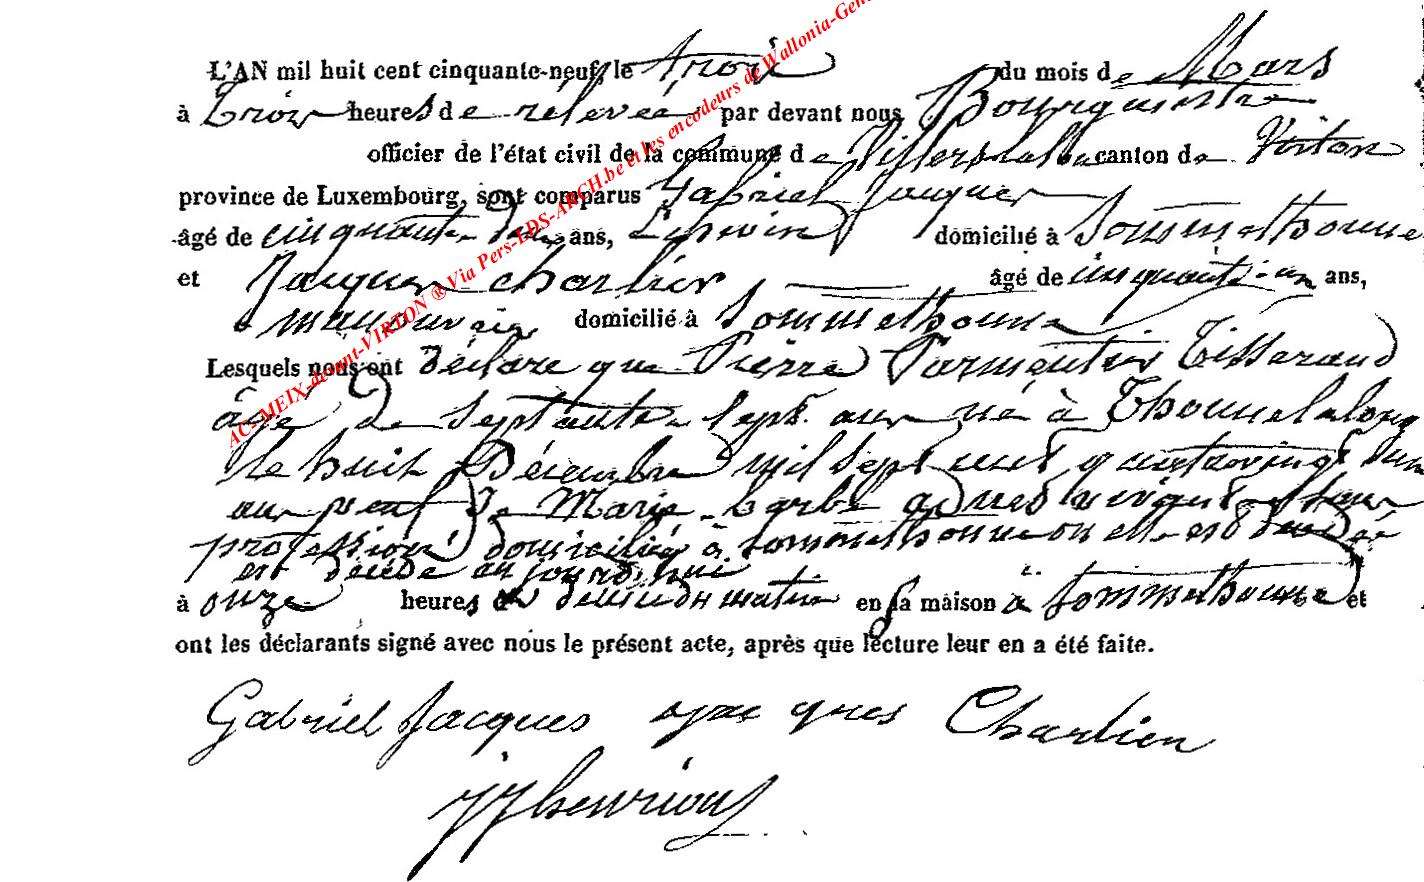 L'AN mil huit cent cinquante-neuf, le trois du mois de Mars
à trois heures de relevée par devant nous Bourgmestre
officier de l'état civil de la commune de Villers la loue canton de Virton
province de Luxembourg, sont comparus Gabriel Jacques
âgé de cinquante deux ans, domicilié à Sommethonne
et Jacques Charlier âgé de cinquante-un ans,
manouvrier domicilié à Sommethonne
Lesquels nous ont déclaré que Pierre Parmentier Tisserand
âgé de septante sept ans né à Thonnelalong
le huit Décembre mil sept cent quatrevingt un
Marie barbe vivant sans
profession domiciliée à sommethonne où elle est décédée
est décédé aujourd'hui
à onze heures du matin en sa maison à sommethonne et
ont les déclarants signé avec nous le présent acte, après que lecture leur en a été faite.
Gabriel Jacques Jacques Charlier
JJ henrion
AC-MEIX-devant-VIRTON ® Via Pers-LDS-ARCH.be et les encodeurs de Wallonia-Gen